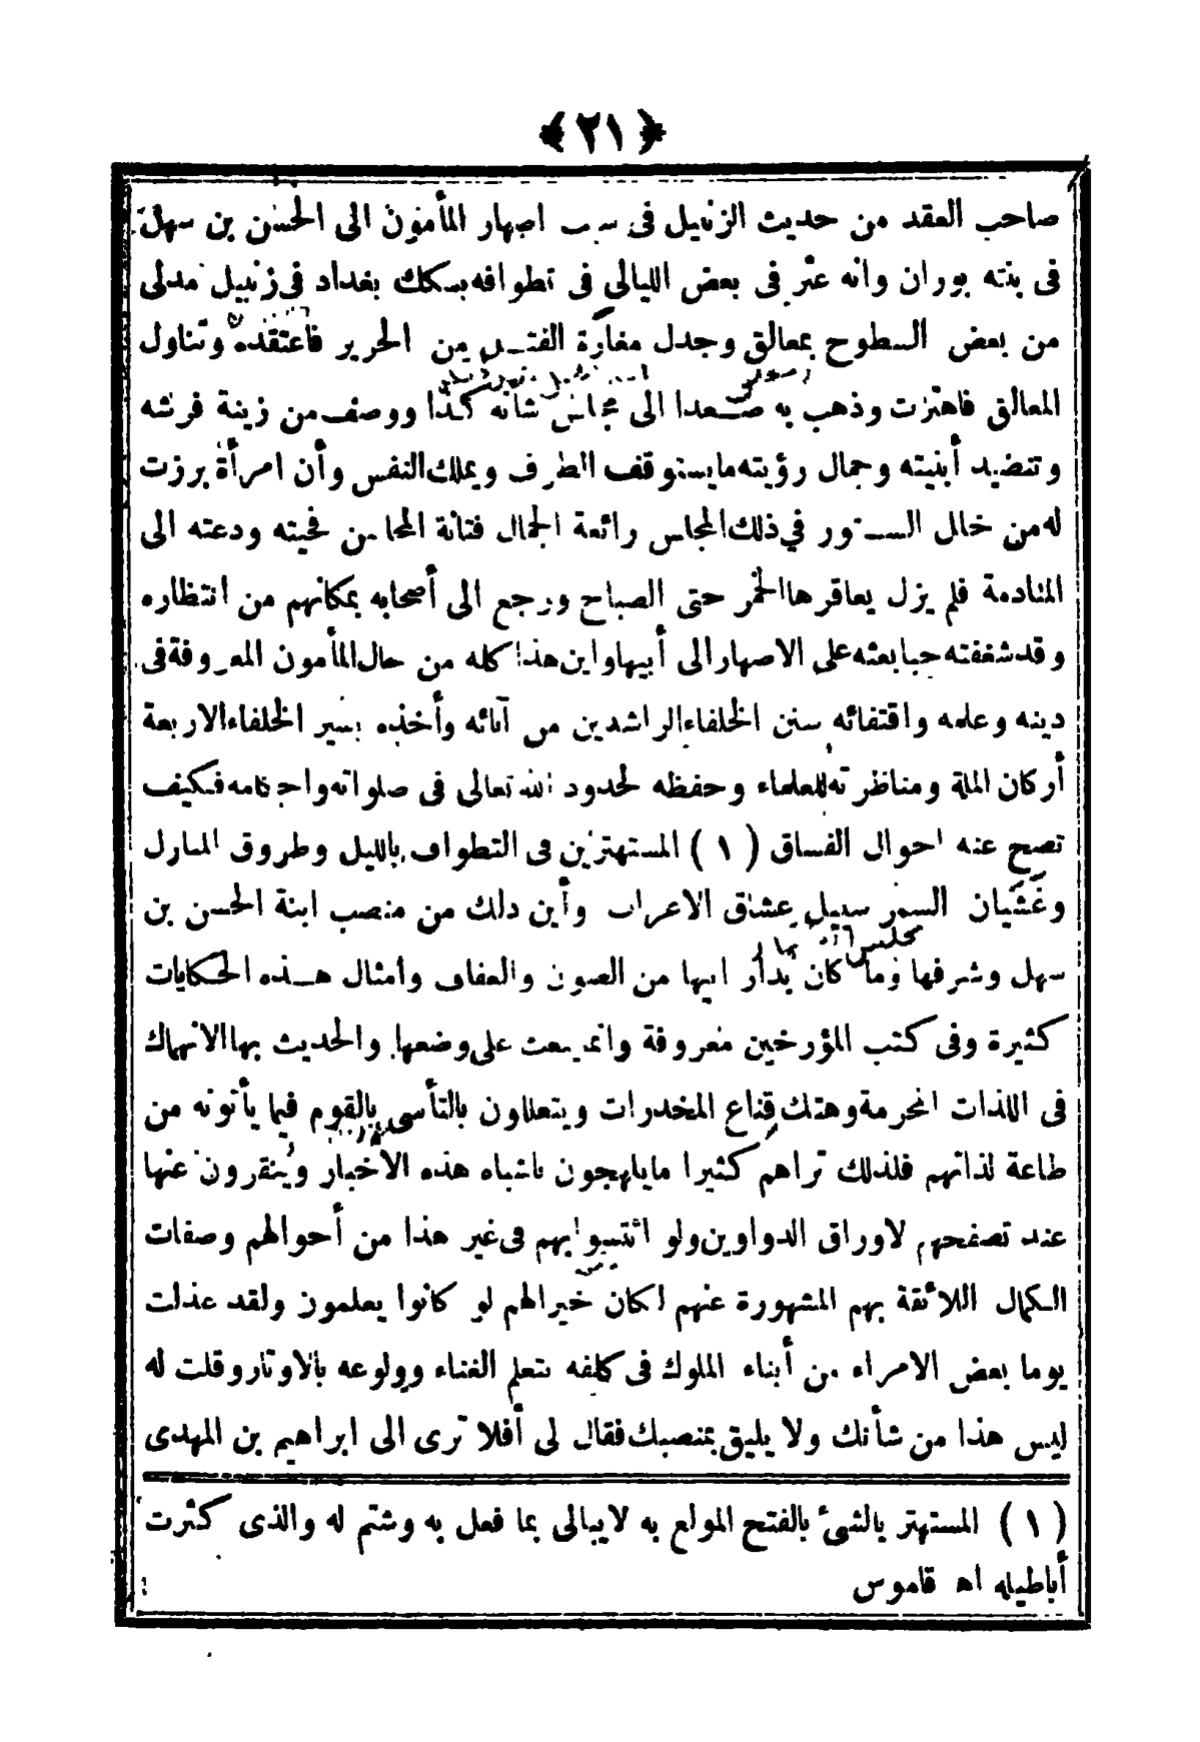 ﴿ ٢١ ﴾
صاحب العقد من حديث الزنبيل فى سبب اصهار المأمون الى الحسن بن سهل
فى بنته بوران وانه عثر فى بعض الليالي فى تطوافه بسكك بغداد فى زنبيل مدلى
من بعض السطوح بمعالق وجدل مغارة الفتل من الحرير فاعتقده وتناول
المعالق فاهتزت وذهب به صعدا الى مجلس شانه كذا ووصف من زينة فرشه
وتنضيد أبنيته وجمال رؤيته مايستوقف الطرف ويملك النفس وأن امرأة برزت
له من خلال الستور في ذلك المجلس رائعة الجمال فتانة المحاسن فحيته ودعته الى
المنادمة فلم يزل يعاقرها الخمر حتى الصباح ورجع الى أصحابه بمكانهم من انتظاره
وقد شغفته حبا بعثه على الاصهار الى أبيها واين هذا كله من حال المأمون المعروفة فى
دينه وعلمه واقتفائه سنن الخلفاء الراشدين من آبائه وأخذه بسير الخلفاء الاربعة
أركان الملة ومناظرته للعلماء وحفظه لحدود الله تعالى فى صلواته واحكامه فكيف
تصح عنه احوال الفساق ( ١ ) المستهترين فى التطواف بالليل وطروق المنازل
وغشيان السمر سبيل عشاق الاعراب وأين ذلك من منصب ابنة الحسن بن
سهل وشرفها وما كان بدار ابيها من الصون والعفاف وامثال هذه الحكايات
كثيرة وفى كتب المؤرخين معروفة وانما يبعث على وضعها والحديث بها الانهماك
فى اللذات المحرمة وهتك قناع المخدرات ويتعللون بالتأسى بالقوم فيما يأتونه من
طاعة لذاتهم فلذلك تراهم كثيرا مايلهجون باشباه هذه الاخبار وينقرون عنها
عند تصفحهم لاوراق الدواوين ولو ائتسوا بهم فى غير هذا من أحوالهم وصفات
الكمال اللائقة بهم المشهورة عنهم لكان خيرا لهم لو كانوا يعلمون ولقد عذلت
يوما بعض الامراء من أبناء الملوك فى كلفه بتعلم الغناء وولوعه بالاوتار وقلت له
ليس هذا من شأنك ولا يليق بمنصبك فقال لى أفلا ترى الى ابراهيم بن المهدى
( ١ ) المستهتر بالشئ بالفتح المولع به لايبالى بما فعل به وشتم له والذى كثرت
أباطيله اه قاموس